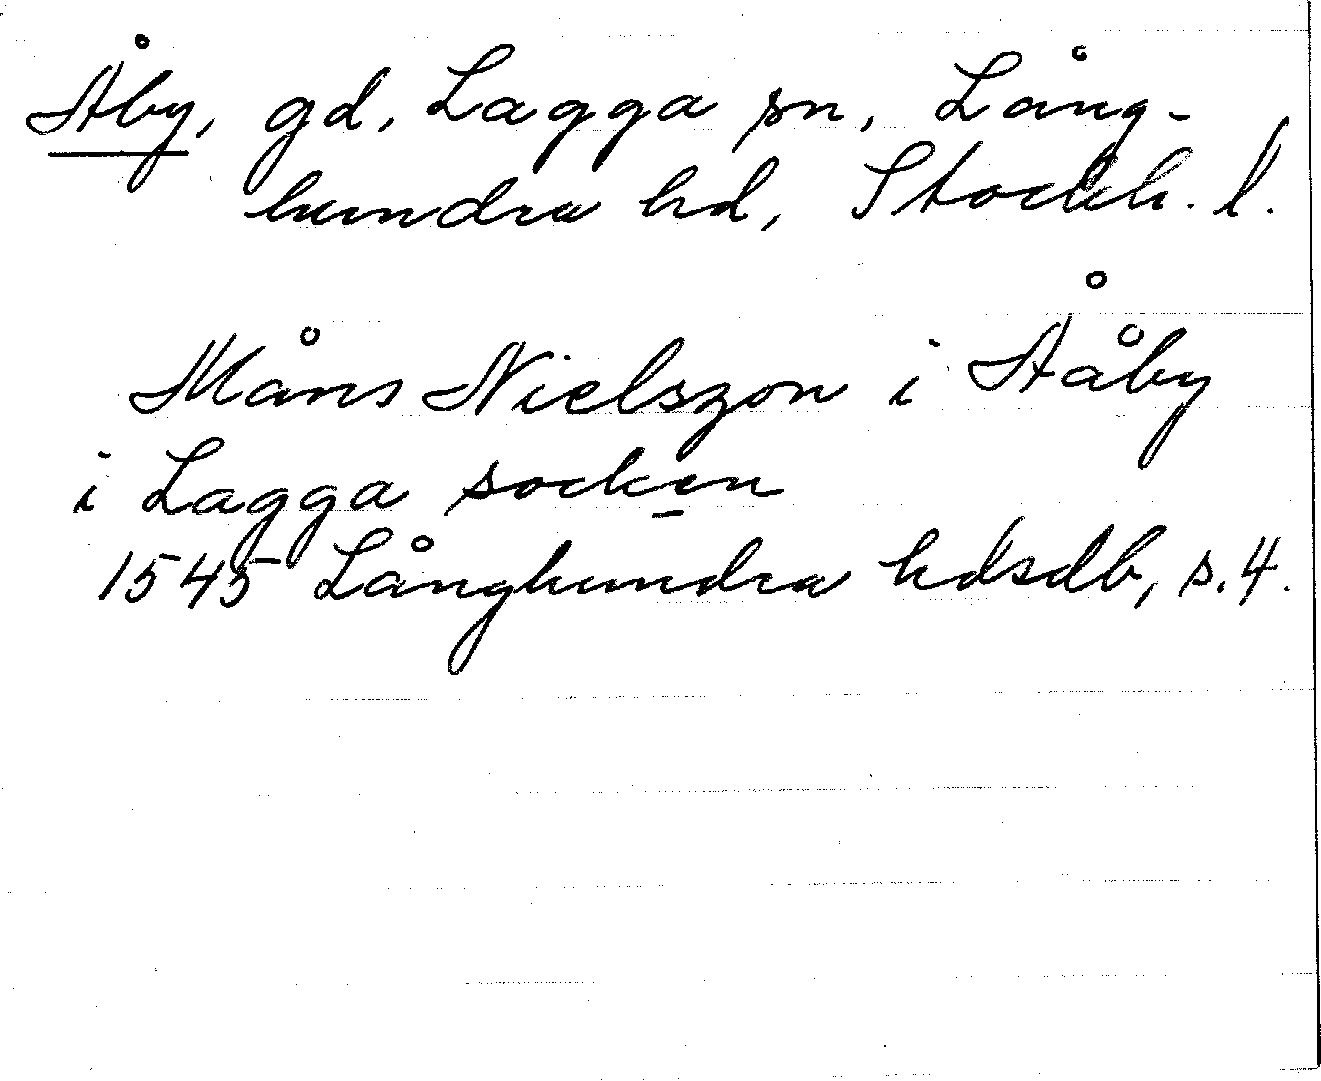 Åby, gd, Lagga sn, Lång-
hundra hd, Stockh. l.
Måns Nielszon i Ååby
i Lagga socken
1545 Långhundra hdsdb, s. 4.